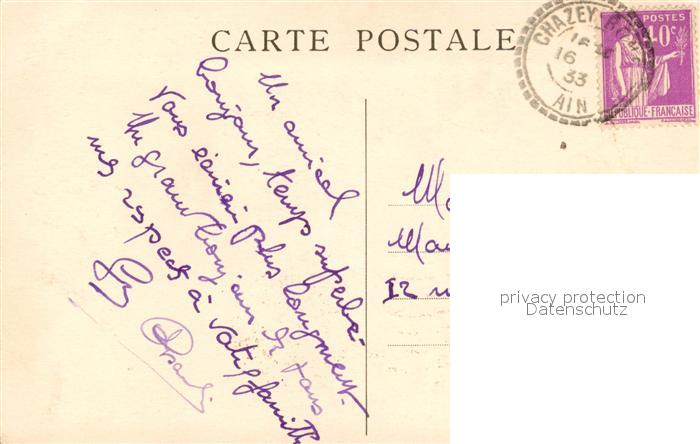 CARTE POSTALE
CHAZEY-BONS
16
33
AIN
POSTES
40c
RÉPUBLIQUE-FRANÇAISE
Un amical
bonjour, temps superbe.
Vous écrirai plus longuement.
Un grand bonjour à tous
mes respects à votre famille
Guy
Ma
Mar
12
privacy protection
Datenschutz